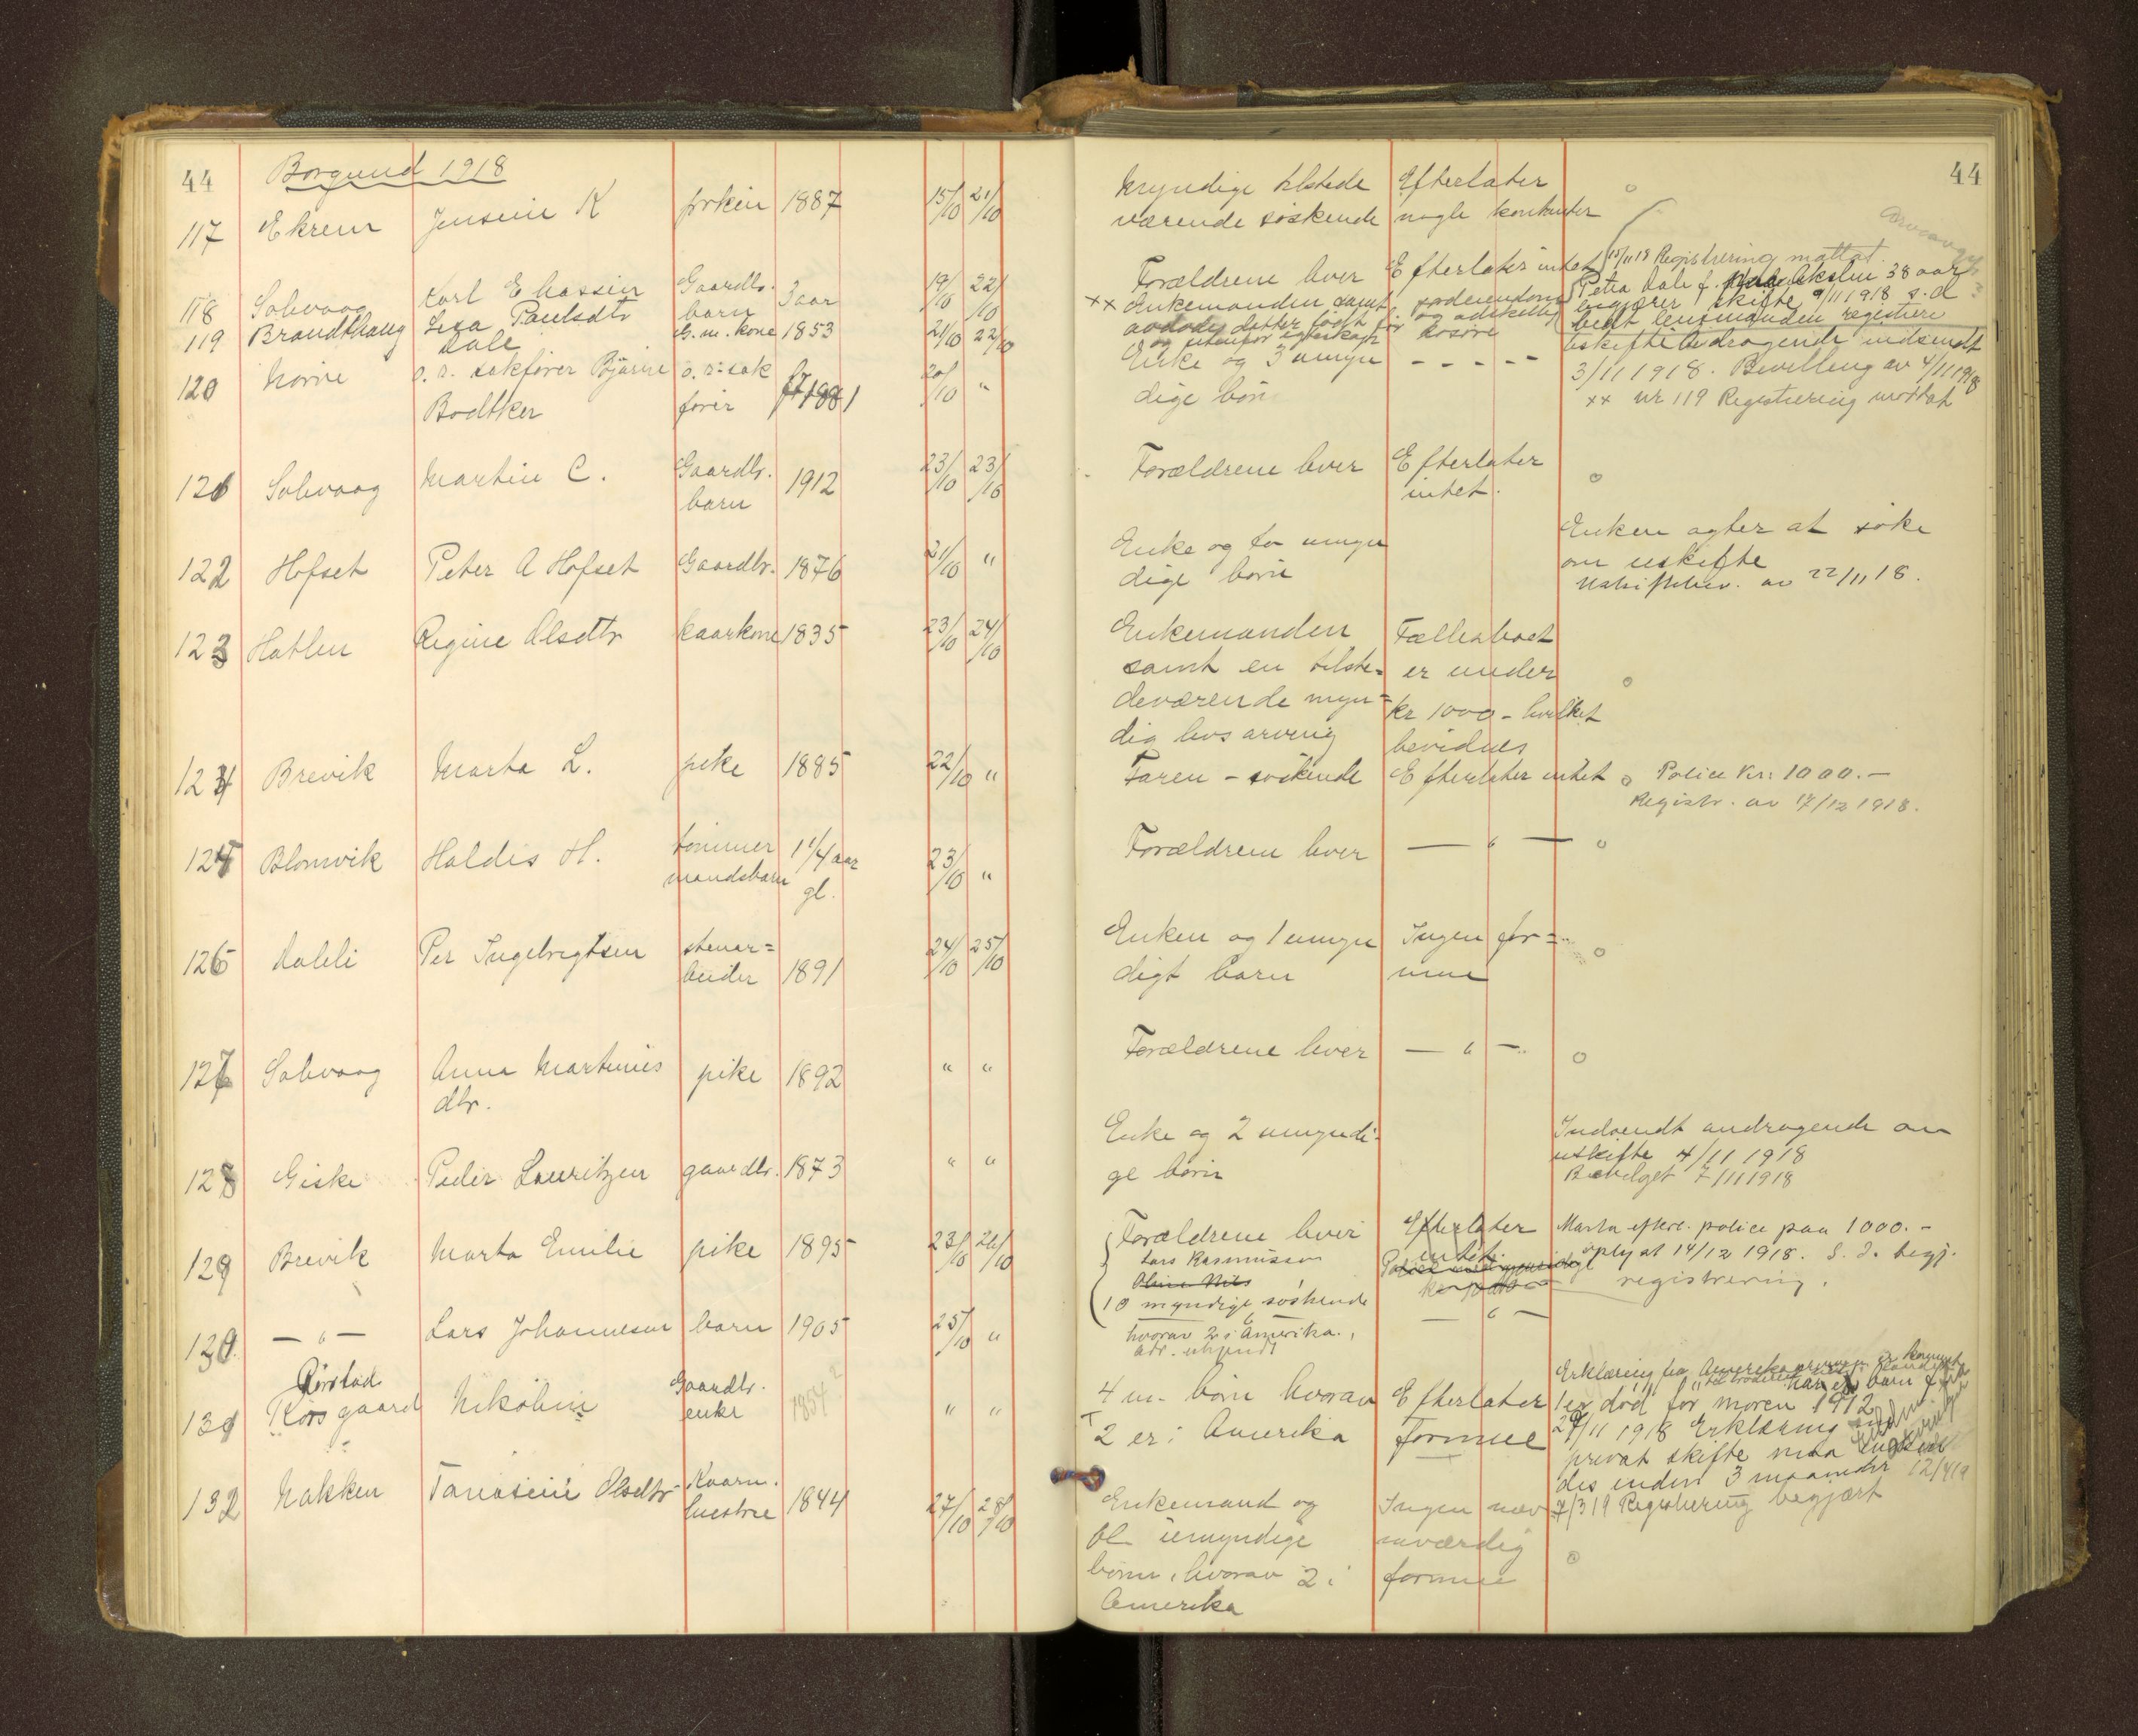 44
Borgund 1918
117 Ekrem Jensine K frøken 1887 15/10 21/10
118 Solvaag Karl Eliassen Gaardbr. barn 3 aar 19/10 22/10
119 Brandthaug Lisa Paulsdtr Dale G.m. kone 1853 21/10 22/10
120 Nørve o. r. sakfører Bjarne Bødtker o. r. sak fører 1881 20/10 "
121 Solvaag Martin C. Gaardbr. barn 1912 23/10 23/10
122 Hofset Peter A Hofset Gaardbr. 1876 21/10 "
123 Hatlen Regine Olsdtr kaarkone 1835 23/10 24/10
124 Brevik Marta L. pike 1885 22/10 "
125 Blomvik Haldis H. tømmer mandsbarn 1 1/4 aar gl. 23/10 "
126 Dalli Per Ingebrigtsen stenar= beider 1891 24/10 25/10
127 Solvaag Anna Martinus dtr. pike 1892 " "
128 Giske Peder Lauritzen gaardbr. 1873 " "
129 Brevik Marta Emilie pike 1895 23/10 26/10
130 — " — Lars Johannesen barn 1905 25/10 "
131 Rørstad Korsgaard Nikoline Gaardbr. enke 1854? " "
132 Nakken Tanasine Olsdtr Kaarm. hustrue 1844 27/10 28/10
44
Myndige tilstede Efterlater
værende søskende nogle kontanter
Forældrene lever Efterlater intet
15/11 18 Registrering mottat.
xx Enkemanden samt
Petra Dale f. 38 aar
begjærer skifte 9/11 1918 s.d
bedt lensmanden registrere
avdødes datter født før
og utenfor egteskap
og adskillig løsøre
Enke og 3 umyn
dige børn
- - - - -
uskifteandragende indsendt
3/11 1918. Bevilling av 4/11 1918
xx nr 119 Registrering mottat
Forældrene lever Efterlater
intet.
Enke og to umyn
dige børn
Enken agter at søke
om uskifte
Uskiftebev. av 22/11 18.
Enkemanden Fællesboet
samt en tilste= er under
deværende myn= kr 1000 - hvilket
dig livsarving bevidnes
Faren - søskende Efterlater intet Police kr: 1000.—
Registr. av 17/12 1918.
Forældrene lever — " —
Enken og 1 umyn Ingen for=
digt barn mue
Forældrene lever — " —
Enke og 2 umyndi-
ge børn
Indsendt andragende om
uskifte 4/11 1918
Bevilget 7/11 1918
Forældrene lever Efterlater
intet.
Lars Rasmussen
10 myndige søskende
Marta efterl. police paa 1000.-
oplyst 14/12 1918. S. D. begj.
registrering.
— " —
hvorav 2 i Amerika.
adr. ukjendt
4 m. børn hvorav Efterlater
2 er i Amerika formue
Erklæring fra
1 er død før moren 1912
27/11 1918 Erklæring
privat skifte maa
des inden 3 maaneder 12/4 19
7/3 19 Registrering begjært
Enkemand og Ingen næv
umyndige neværdig
børn, hvorav 2 i formue
Amerika